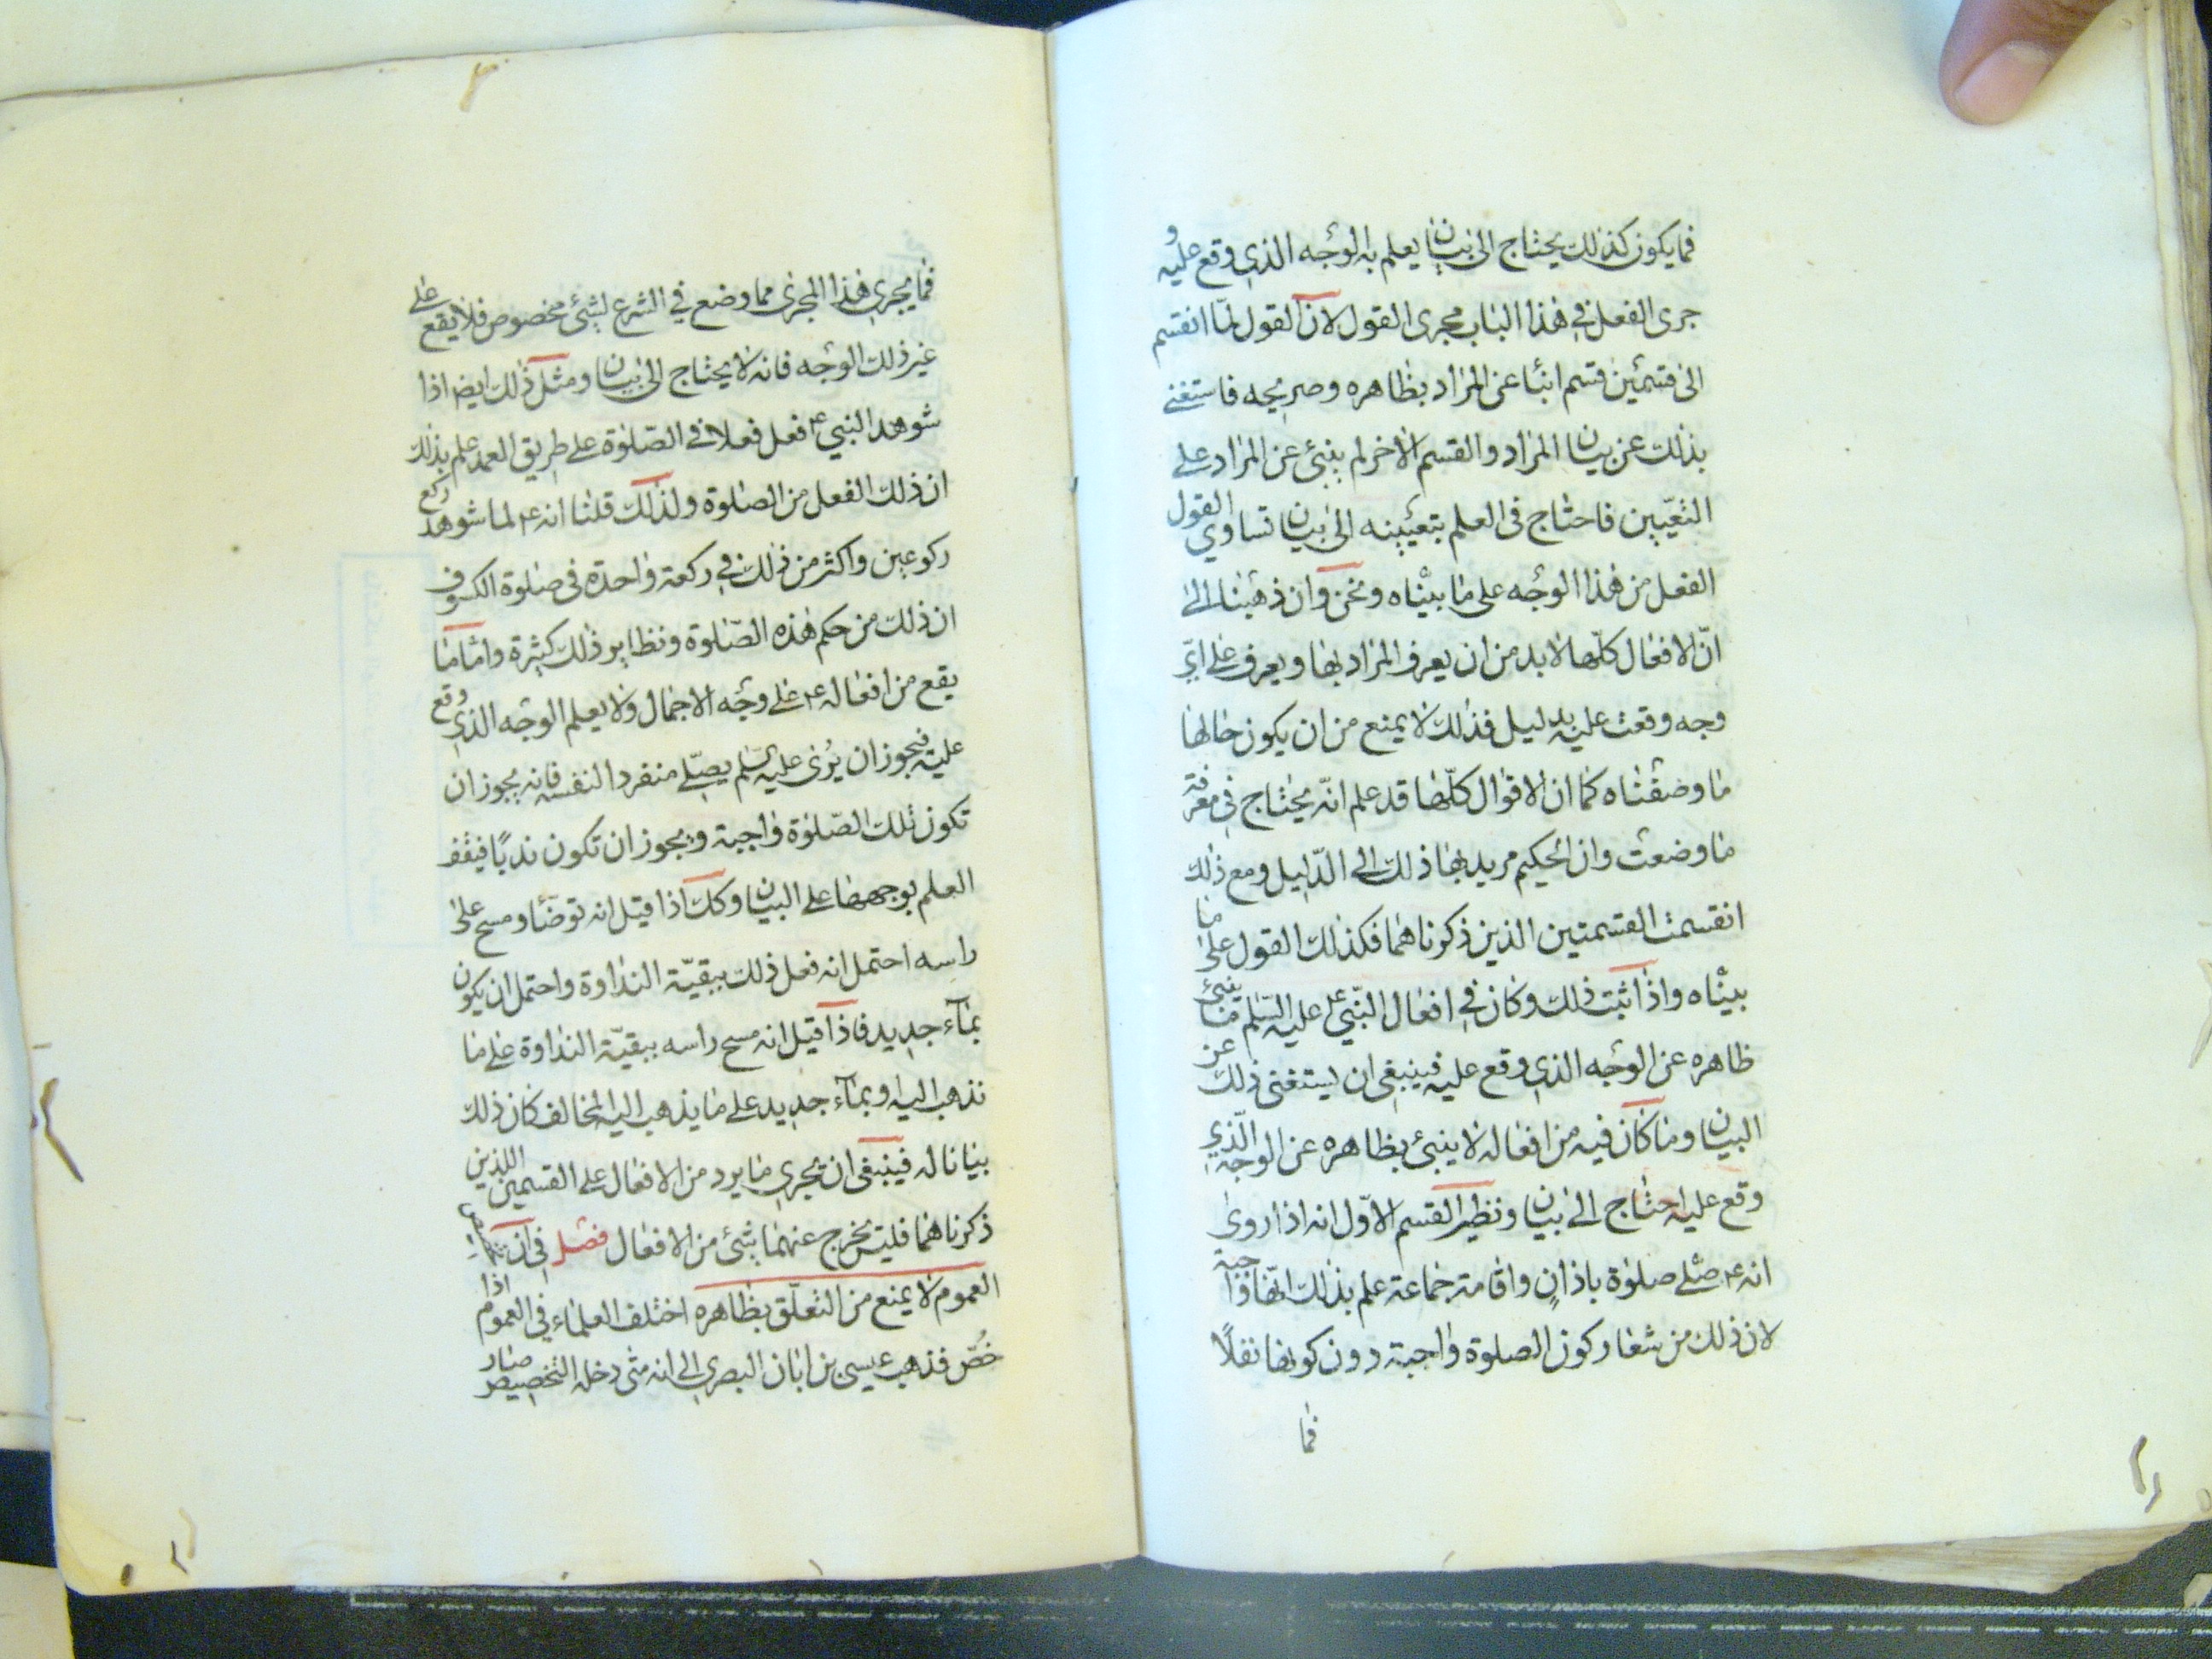 فما يكون كذلك يحتاج الى بيان يعلم به الوجه الذي وقع عليه و
جرى الفعل في هذا الباب مجرى القول لان القول لمّا انقسم
الى قسمين قسم انبأ عن المراد بظاهره وصريحه فاستغنى
بذلك عن بيان المراد والقسم الاخر لم ينبئ عن المراد على
التعيين فاحتاج في العلم بتعيينه الى بيان تساوي القول
الفعل من هذا الوجه على ما بيّناه ونحن وان ذهبنا الى
انّ الافعال كلّها لا بد من ان يعرف المراد بها ويعرف على ايّ
وجه وقعت عليه بدليل فذلك لا يمنع من ان يكون حالها
ما وصفناه كما ان الاقوال كلّها قد علم انّه يحتاج في معرفة
ما وضعت وان الحكيم مريد بها ذلك الى الدّليل ومع ذلك
انقسمت القسمتين الذين ذكرناهما فكذلك القول على ما
بيّناه واذا ثبت ذلك وكان في افعال النّبي ع عليه السّلم ما ينبئ
ظاهره عن الوجه الذي وقع عليه فينبغي ان يستغنى ذلك عن
البيان وما كان فيه من افعاله لا ينبئ بظاهره عن الوجه الّذي
وقع عليه احتاج الى بيان ونظير القسم الاوّل انه اذا روى
انه ع صلّى صلوة باذان واقامة جماعة علم بذلك انّها واجبة
لان ذلك من شعار كون الصلوة واجبة دون كونها نفلًا
فما
فما يجرى هذا المجرى مما وضع في الشرع لشئ مخصوص فلا يقع على
غير ذلك الوجه فانه لا يحتاج الى بيان ومثل ذلك ايضا اذا
شوهد النبي ع فعل فعلا في الصّلوة على طريق العمد علم بذلك
ان ذلك الفعل من الصلوة ولذلك قلنا انه ع لما شوهد ركع
ركوعين واكثر من ذلك في ركعة واحدة في صلوة الكسوف
ان ذلك من حكم هذه الصّلوة ونظاير ذلك كثيرة وامّا ما
يقع من افعاله ع على وجه الاجمال ولا يعلم الوجه الذي وقع
عليه فيجوز ان يُرى عليه السّلم يصلّي منفردا لنفسه فانه يجوز ان
تكون تلك الصّلوة واجبة ويجوز ان تكون ندبًا فيقف
العلم بوجهها على البيان وكك اذا قيل انه توضّأ ومسح على
راسه احتمل انه فعل ذلك ببقيّة النداوة واحتمل ان يكون
بمآء جديد فاذا قيل انه مسح راسه ببقيّة النداوة على ما
نذهب اليه او بمآء جديد على ما يذهب اليه المخالف كان ذلك
بيانا له فينبغي ان يجرى ما يرد من الافعال على القسمين اللذين
ذكرناهما فليس يخرج عنهما شئ من الافعال فصل في ان
العموم لا يمنع من التعلّق بظاهره اختلف العلماء في العموم اذا
خُصّ فذهب عيسى بن ابان البصري الى انه متى دخله التخصيص صار